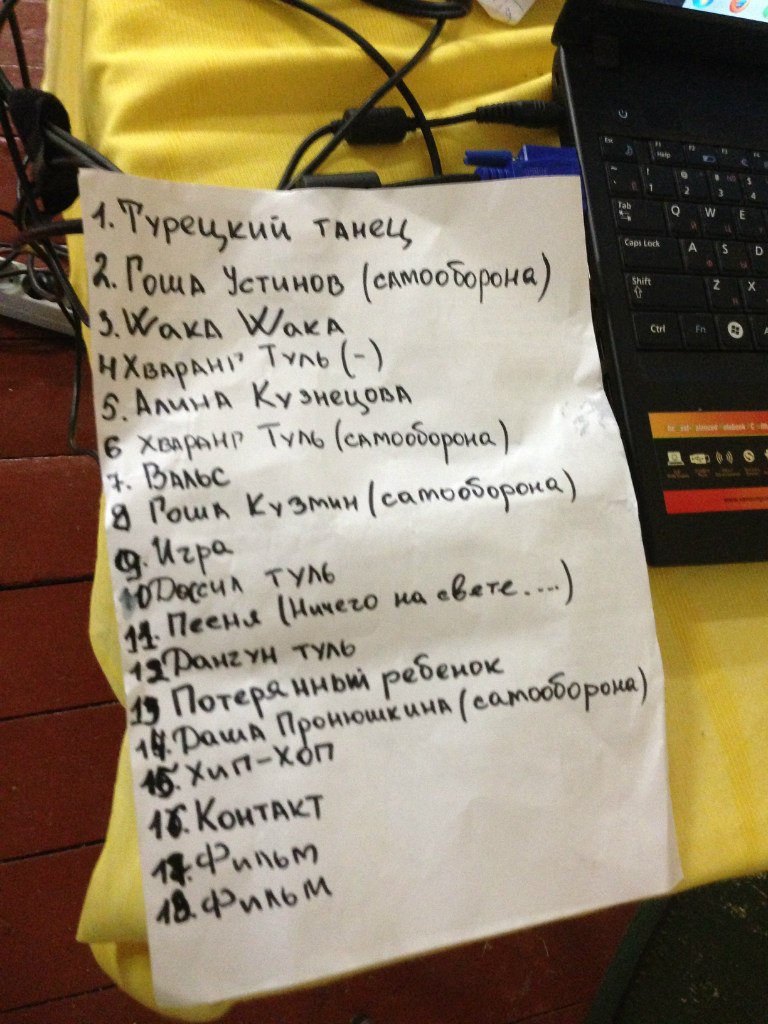 1. Турецкий танец
2. Гоша Устинов (самооборона)
3. Wака Wака
4 Хваранг Туль (-)
5. Алина Кузнецова
6 Хваранг Туль (самооборона)
7. Вальс
8 Гоша Кузмин (самооборона)
9. Игра
10 Доссил туль
11. Песня (Ничего на свете....)
12 Дангун туль
13 Потерянный ребенок
14. Даша Пронюшкина (самооборона)
15. Хип-Хоп
16. Контакт
17. Фильм
18. Фильм
Esc
F1 Help F2 F3
! 1 @ 2 # 3 $ 4
Tab Q W E
Caps Lock A S D
Shift Z X
Ctrl Fn